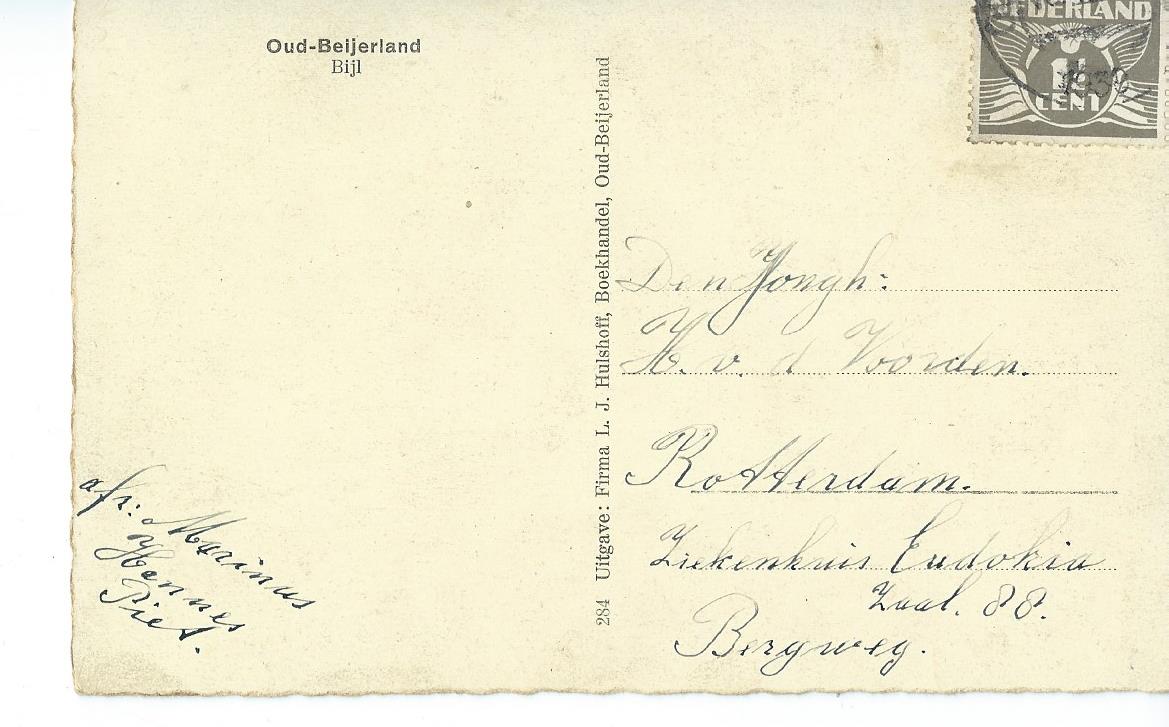 Oud-Beijerland
Bijl
NEDERLAND
1½
CENT
1939
284 Uitgave: Firma L. J. Hulshoff, Boekhandel, Oud-Beijerland
Den Jongh:
H. v. d Voorden.
Rotterdam.
Ziekenhuis Eudokia
Zaal. 88.
Bergweg.
afz: Marinus
Hannes
Piet.